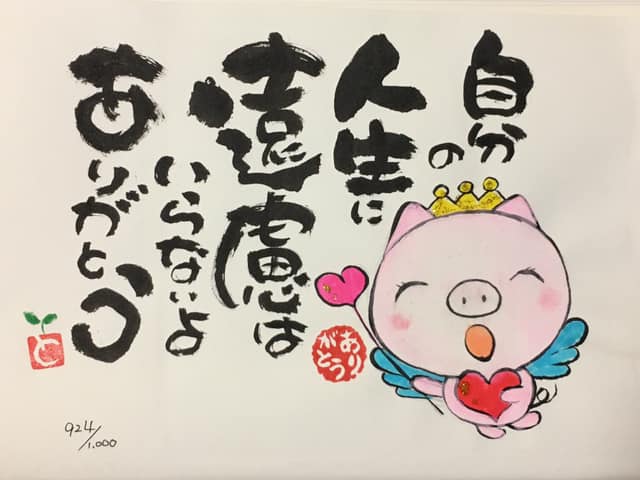 自分の
人生に
遠慮は
いらないよ
ありがとう
ありがとう
924/1.000